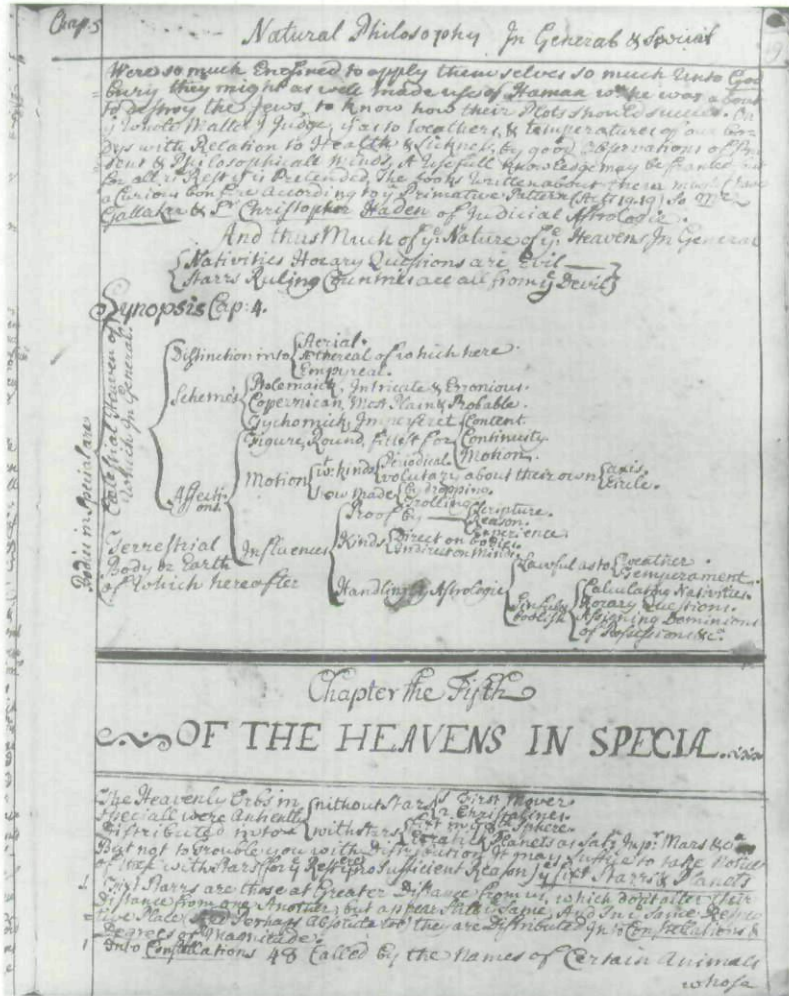 Chap. 5
Natural Philosophy In General & Special
19
Were so much Enclined to apply themselves so much Unto
bury they might as well made use of Haman wn he was about
to destroy the Jews, to know how their Plots should succeed. On
ye Whole Matter I Judge, if as to weathers, & temperatures of our Bo=
dys with Relation to Health & Sickness, by good observations of
& Philosophicall Minds, A Usefull knowledge may be framed but
for all ye Rest it is Pretended, The books written about them might have
a Curious bonfire According to ye Primative Pattern (Acts 19.19) So Mr
Gattaker & Sr Christopher Haden of Judicial Astrologie.
And thus Much of ye Nature of ye Heavens In General
Nativities Horary Questions are Evil
Starrs Ruling Countries are all from ye Devil
Synopsis Cap: 4.
Bodies in Special are
Celestial Heaven of Which In General.
Distinction into
Aerial.
Æthereal of which here.
Empyreal.
Schemes
Ptolemaick, Intricate & Erronious.
Copernican, Most Plain & Probable.
Tychonick, Imperfect
Affecti=
ons.
Figure, Round, fittest for
Content.
Continuity.
Motion.
Motion
wt kinds
Periodical.
volutary about their own
axis.
circle.
how made
by dropping.
Trolling.
Influences
Proof by
Scripture.
Reason.
Experience.
Kinds
Direct on bodies.
Indirect on Minds.
Handling Astrologie
Lawful as to
Weather.
Temperament.
Sinfuly
foolish
Calculating Nativities.
Horary Questions.
Assigning Dominions
of Possessions &c.
Terrestrial
Body or Earth
of Which hereafter
Chapter the Fifth
OF THE HEAVENS IN SPECIA.
The Heavenly Orbs in
Speciall were Anhently
Distributed into
without Stars
1 First Mover.
2 Christaline.
with stars
Fixt in ye 8th Sphere.
Planets as Sat: Jupr. Mars &c
But not to trouble you with Distribution It may Suffice to take Notice
of Those with Stars (for ye Rest were no Sufficient Reason) ye fixt Starrs & Planets
1 Fixt Starrs are those at Greater Distance from us, which dont alter their
Distance from one Another, but appear Still ye Same, And In ye Same
tive Place, Perhaps Absolute too they are Distributed Into Constellations &
Degrees of Magnitude.
1 Into Constellations 48 Called by the Names of Certain Animals
whose